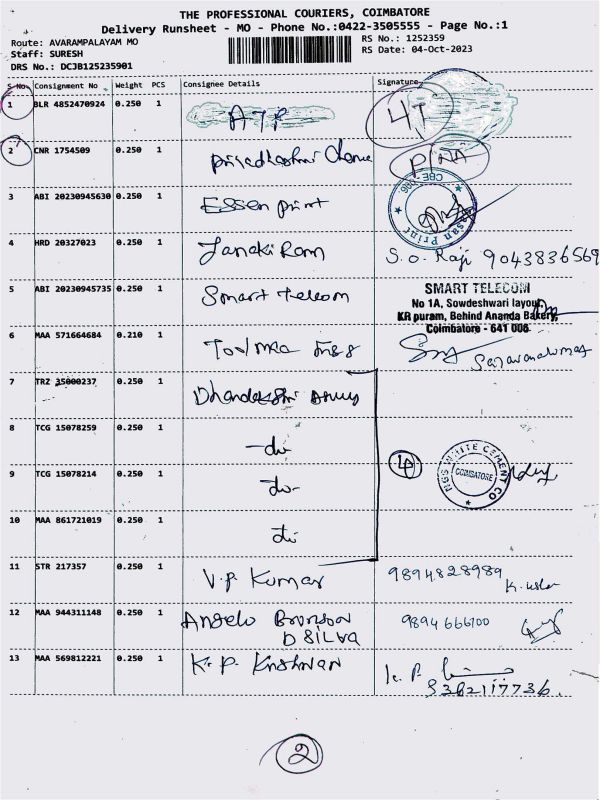 THE PROFESSIONAL COURIERS, COIMBATORE
Delivery Runsheet - MO - Phone No.:0422-3505555 - Page No.:1
Route: AVARAMPALAYAM MO
RS No.: 1252359
Staff: SURESH
RS Date: 04-Oct-2023
DRS No.: DCJB125235901
S No. Consignment No Weight PCS Consignee Details Signature
1 BLR 4852470924 0.250 1
2 CNR 1754509 0.250 1
3 ABI 20230945630 0.250 1 Essen print
4 HRD 20327023 0.250 1 Janaki Ram S.o. Raji 9043836569
5 ABI 20230945735 0.250 1 Smart Telecom SMART TELECOM
No 1A, Sowdeshwari layout,
KR puram, Behind Ananda Bakery,
Coimbatore - 641 006
6 MAA 571664684 0.210 1
7 TRZ 35000237 0.250 1
8 TCG 15078259 0.250 1 -do-
9 TCG 15078214 0.250 1 -do- NGS WHITE CEMENT CO COIMBATORE
10 MAA 861721019 0.250 1 do
11 STR 217357 0.250 1 V.P. Kumar 9894828989
12 MAA 944311148 0.250 1 Angelo Bronson
D SILVA 9894666100
13 MAA 569812221 0.250 1 K. P. Krishnan K. P.
9362117736
2